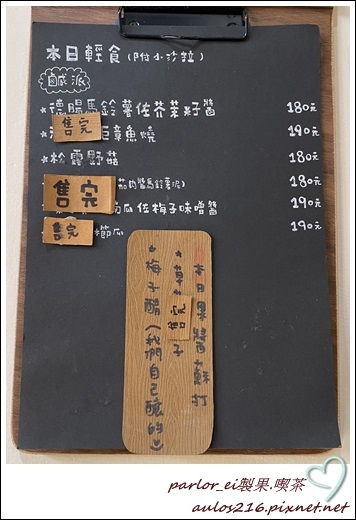 本日輕食(附小沙拉)
鹹派
★德腸馬鈴薯佐芥茉籽醬 180元
售完 章魚燒 190元
★松露野菇 180元
售完 茄肉醬馬鈴薯泥) 180元
南瓜佐梅子味噌醬 190元
售完 節瓜 190元
本日果醬蘇打
售完 子
★梅子醋(我們自己釀的
parlor_ei製果.喫茶
aulos216.pixnet.net